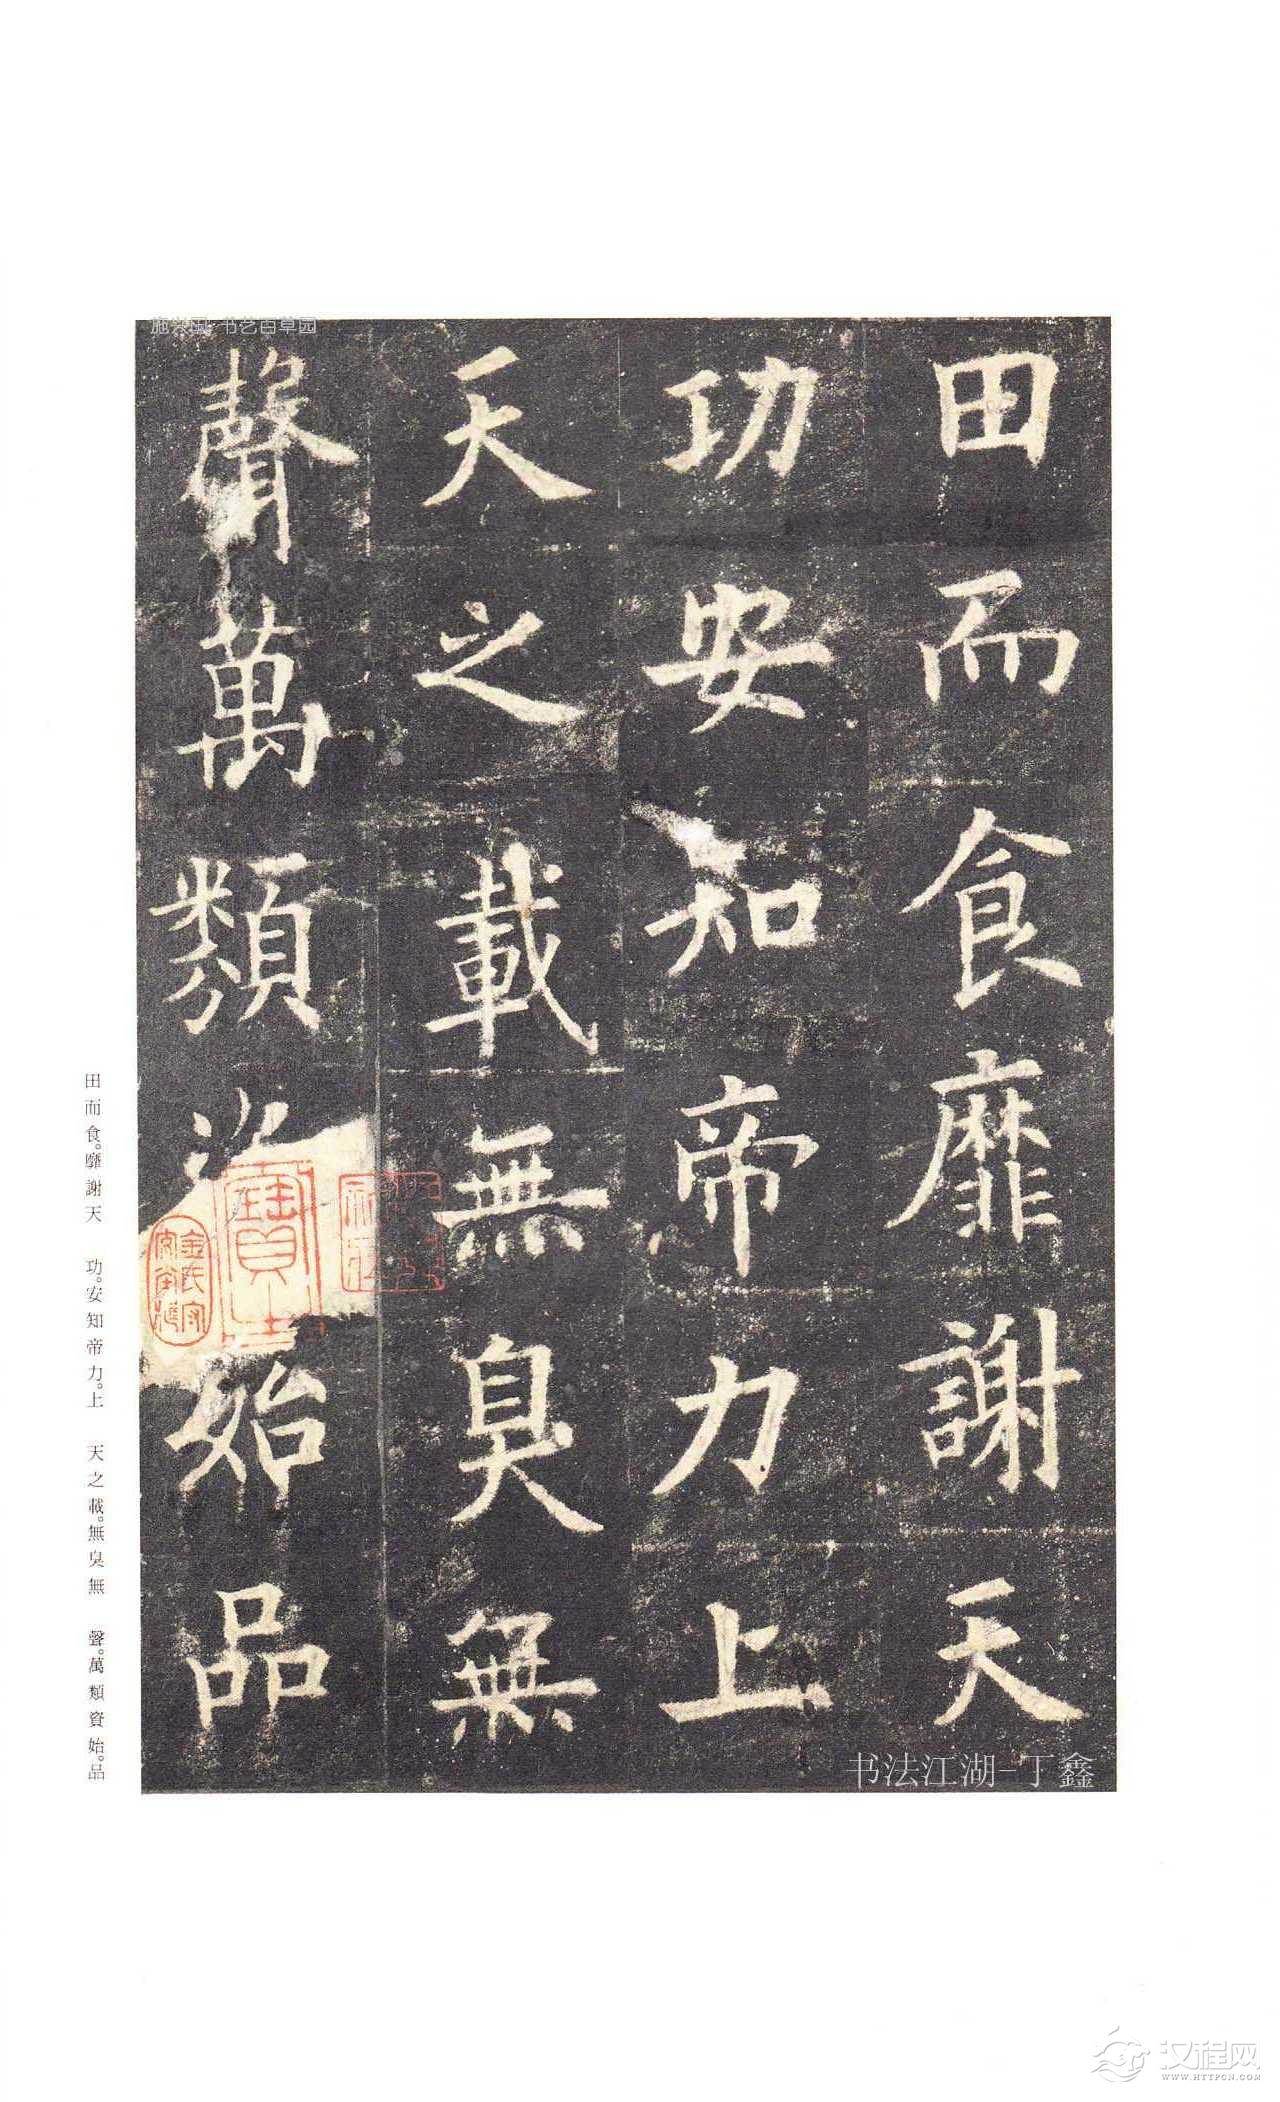 田而食靡謝天
功安知帝力上
天之載無臭無
聲萬類資始品
田而食。靡謝天　功。安知帝力。上　天之載。無臭無　聲。萬類資始。品
书艺百草园
书法江湖-丁鑫
汉程网
WWW.HTTPCN.COM